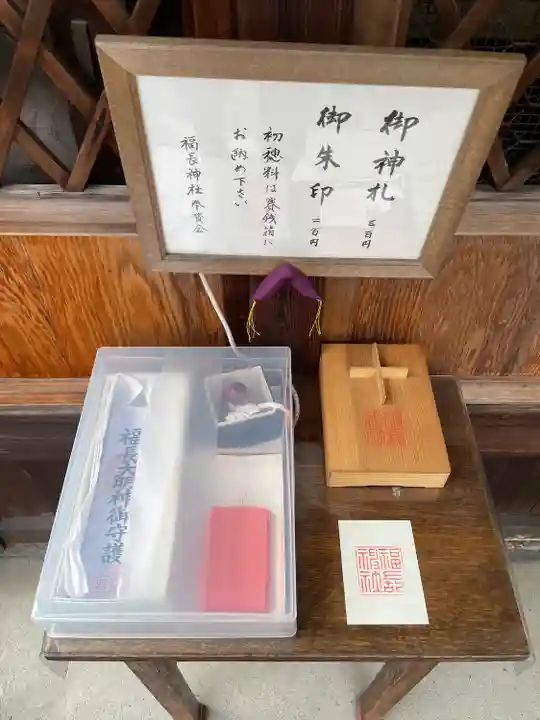 御神札 三百円
御朱印 二百円
初穂料は賽銭箱に
お納め下さい
福長神社奉賛会
福長大明神御守護
福長
神社